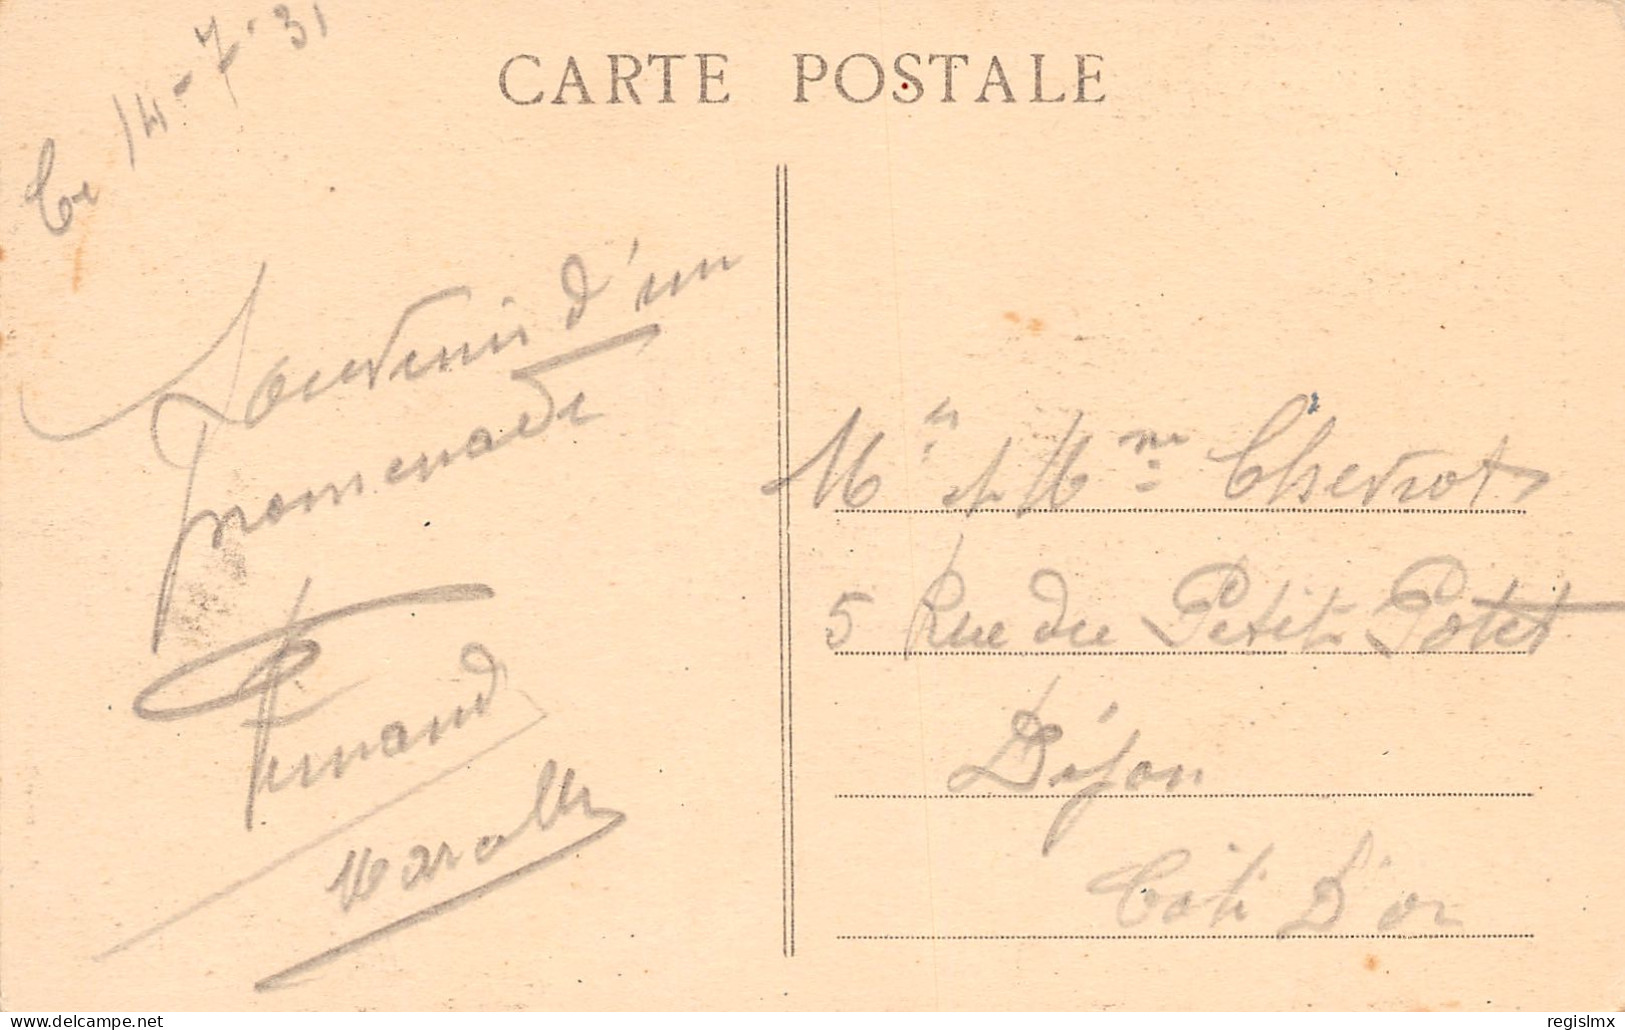 CARTE POSTALE
Ce 14-7-31
Souvenir d'un
promenade
Fernand
Mr et Mme Chevrot
5 Rue du Petit Potet
Dijon
Côte D'or
www.delcampe.net
regislmx